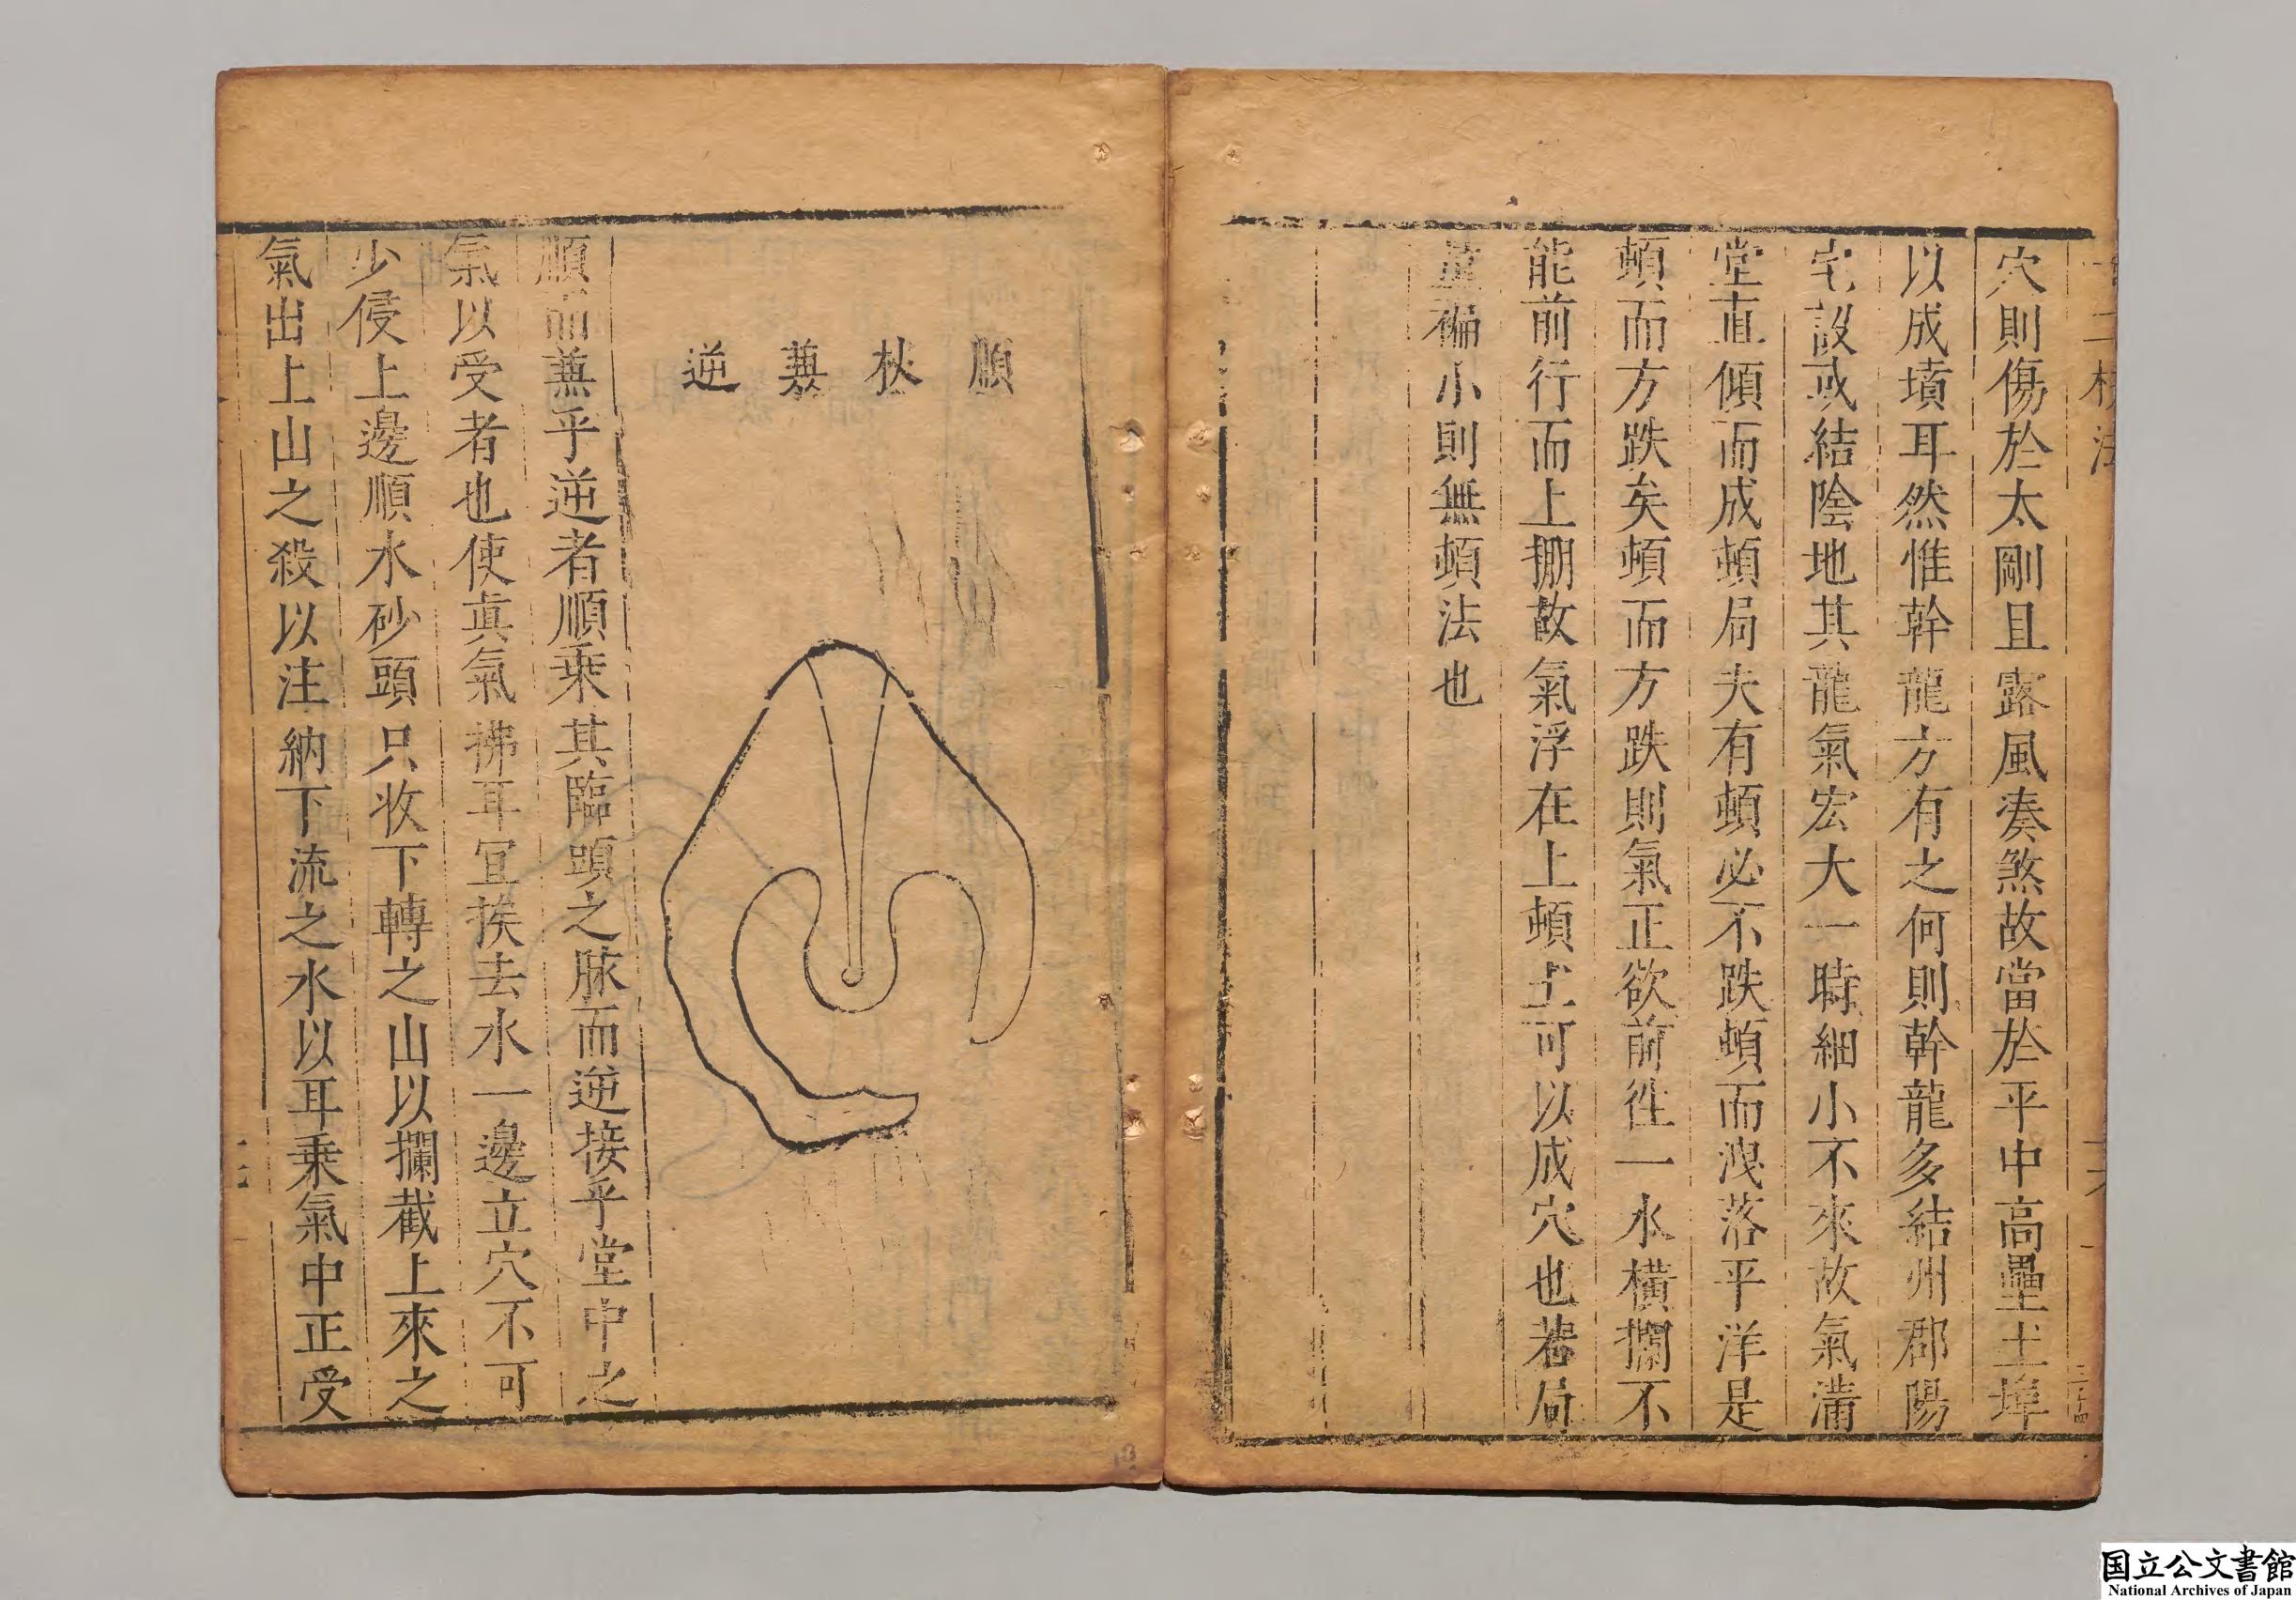 穴則傷於太剛且露風湊煞故當於平中高壘土埠
以成墳耳然惟幹龍方有之何則幹龍多結州郡陽
宅設或結陰地其龍氣宏大一時細小不來故氣滿
堂直傾而成頓局夫有頓必不跌頓而洩落平洋是
頓而方跌矣頓而方跌則氣正欲前徃一水橫攔不
能前行而上掤故氣浮在上頓土可以成穴也若局
褊小則無頓法也
順杖兼逆
順而兼乎逆者順乗其臨頭之脉而逆接乎堂中之
氣以受者也使眞氣拂耳宜挨去水一邊立穴不可
少侵上邊順水砂頭只收下轉之山以攔截上來之
氣出上山之殺以注納下流之水以耳乗氣中正受
国立公文書館
National Archives of Japan